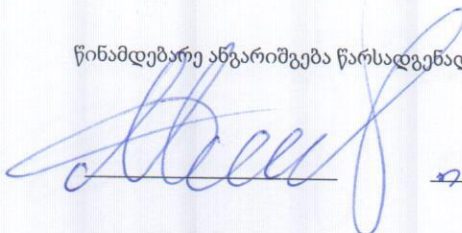 წინამდებარე ანგარიშგება წარსადგენად